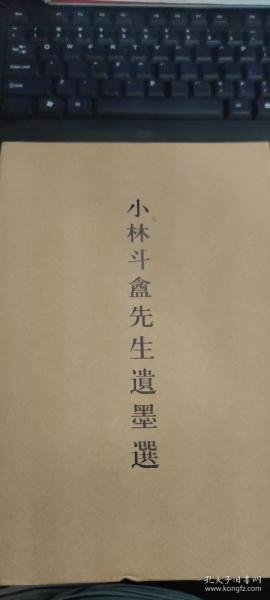 小林斗盦先生遺墨選
孔夫子旧书网
www.kongfz.com